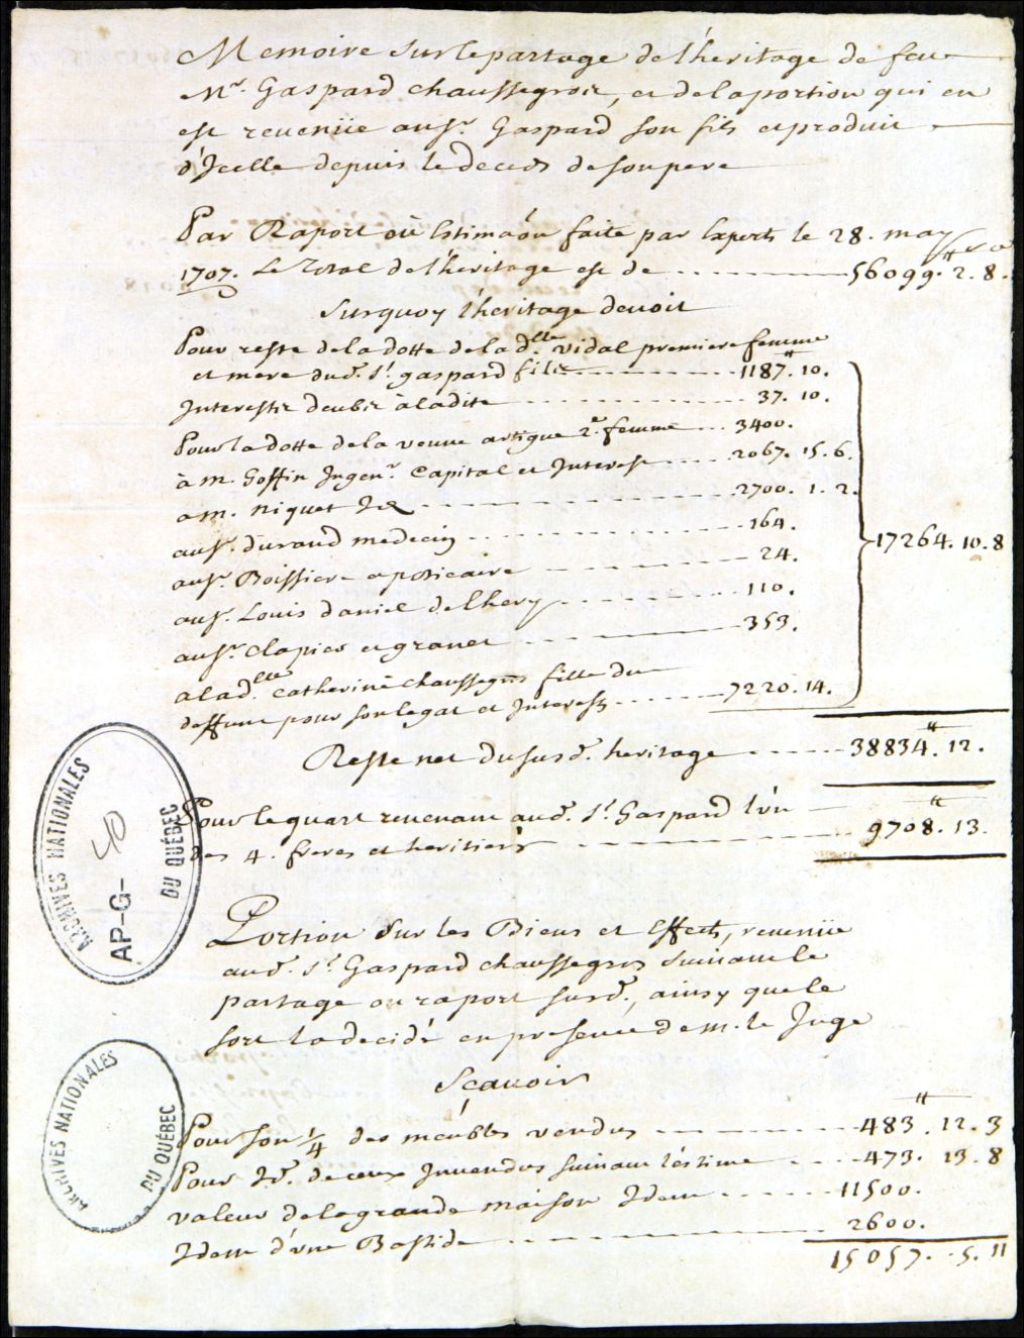 Memoire sur le partage de l'heritage de feu
Mr. Gaspard chaussegros, et de la portion qui en
est revenüe au sr. Gaspard son fils et produit
d'Icelle depuis le deceds de son pere
Par Raport où Estimaôn faite par Experts le 28. may
1707. Le Total de l'heritage est de 56099.tt 2.s 8.d
Surquoy l'heritage devoit
Pour reste de la dotte de la d.lle Vidal premiere femme
et mere du d. Sr. gaspard fils 1187.tt 10.
Interests deubs à ladite 37. 10.
Pour la dotte de la veuve artigue 2.e femme 3400.
à m. Goffin Ingenr. Capital et Interest 2067. 15. 6.
a m. niquet Id. 2700. 1. 2.
au sr. durand medecin 164.
au sr. Boissiere apoticaire 24.
au sr. Louis daniel de lhery 110.
au sr. Clapies et granet 353.
a la d.lle Catherine chaussegros fille du
deffunt pour son legat et Interests 7220. 14.
17264. 10. 8
Reste net du susd. heritage 38834.tt 12.
Pour le quart revenant au d. Sr. Gaspard l'ún
des 4. freres et heritiers 9708.tt 13.
Portion sur les Biens et Effects, revenüe
au d. Sr. Gaspard chaussegros suivant le
partage ou raport susd., ainsy que le
sort la decidé en presence de m. le Juge
Scavoir
Pour son 1/4 des meubles vendus 483.tt 12. 3
Pour Id. de ceux Invendus suivant l'éstime 473. 13. 8
valeur de la grande maison Idem 11500.
Idem d'une Bastide 2600.
15057. 5. 11
ARCHIVES NATIONALES
DU QUÉBEC
AP-G- 40
ARCHIVES NATIONALES
DU QUÉBEC